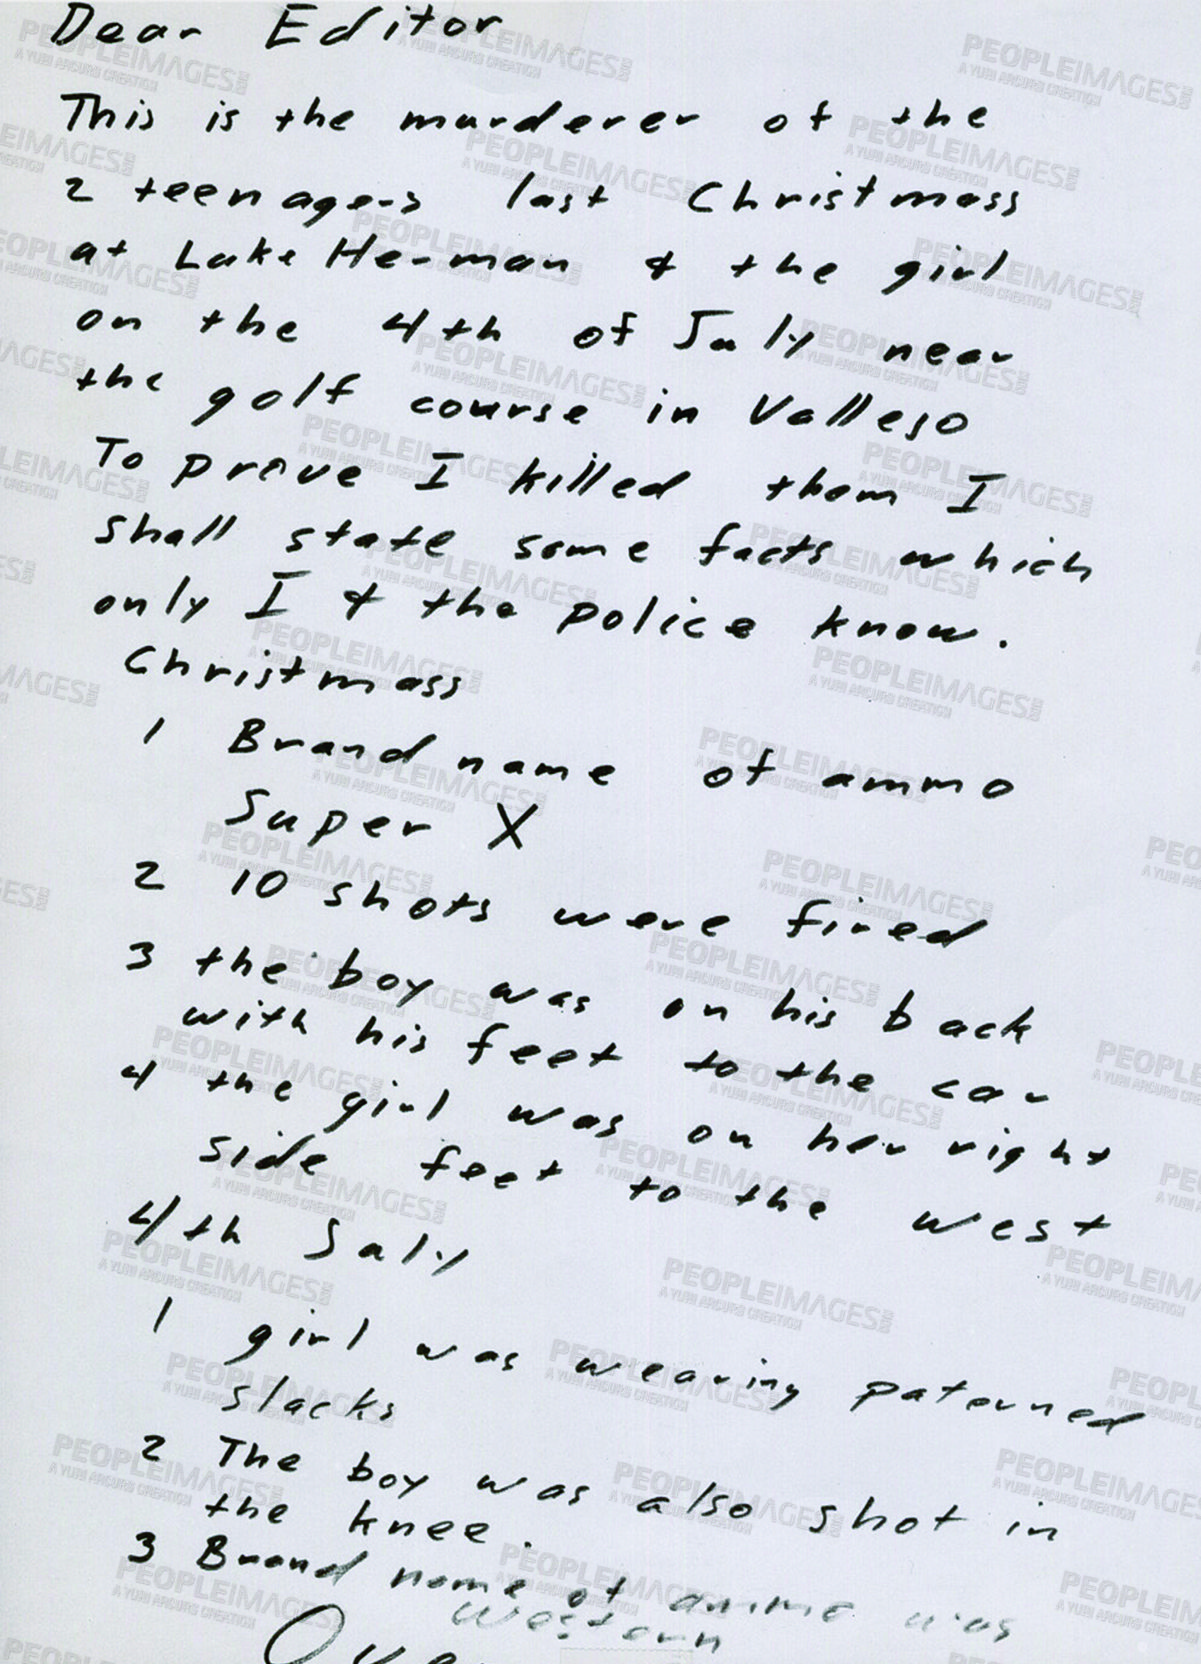 Dear Editor
This is the murderer of the
2 teenagers last Christmass
at Lake Herman & the girl
on the 4th of July near
the golf course in Vallejo
To prove I killed them I
shall state some facts which
only I & the police know.
Christmass
1 Brand name of ammo
Super X
2 10 shots were fired
3 the boy was on his back
with his feet to the car
4 the girl was on her right
side feet to the west
4th July
1 girl was wearing paterned
slacks
2 The boy was also shot in
the knee.
3 Brand name of ammo was
Western
Over
PEOPLEIMAGES.COM
A YURI ARCURS CREATION